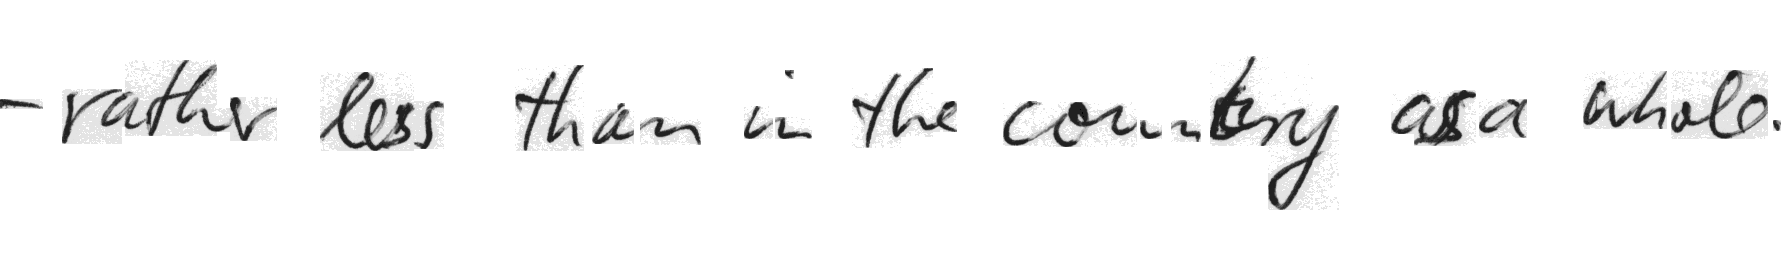 - rather less than in the country as a whole.